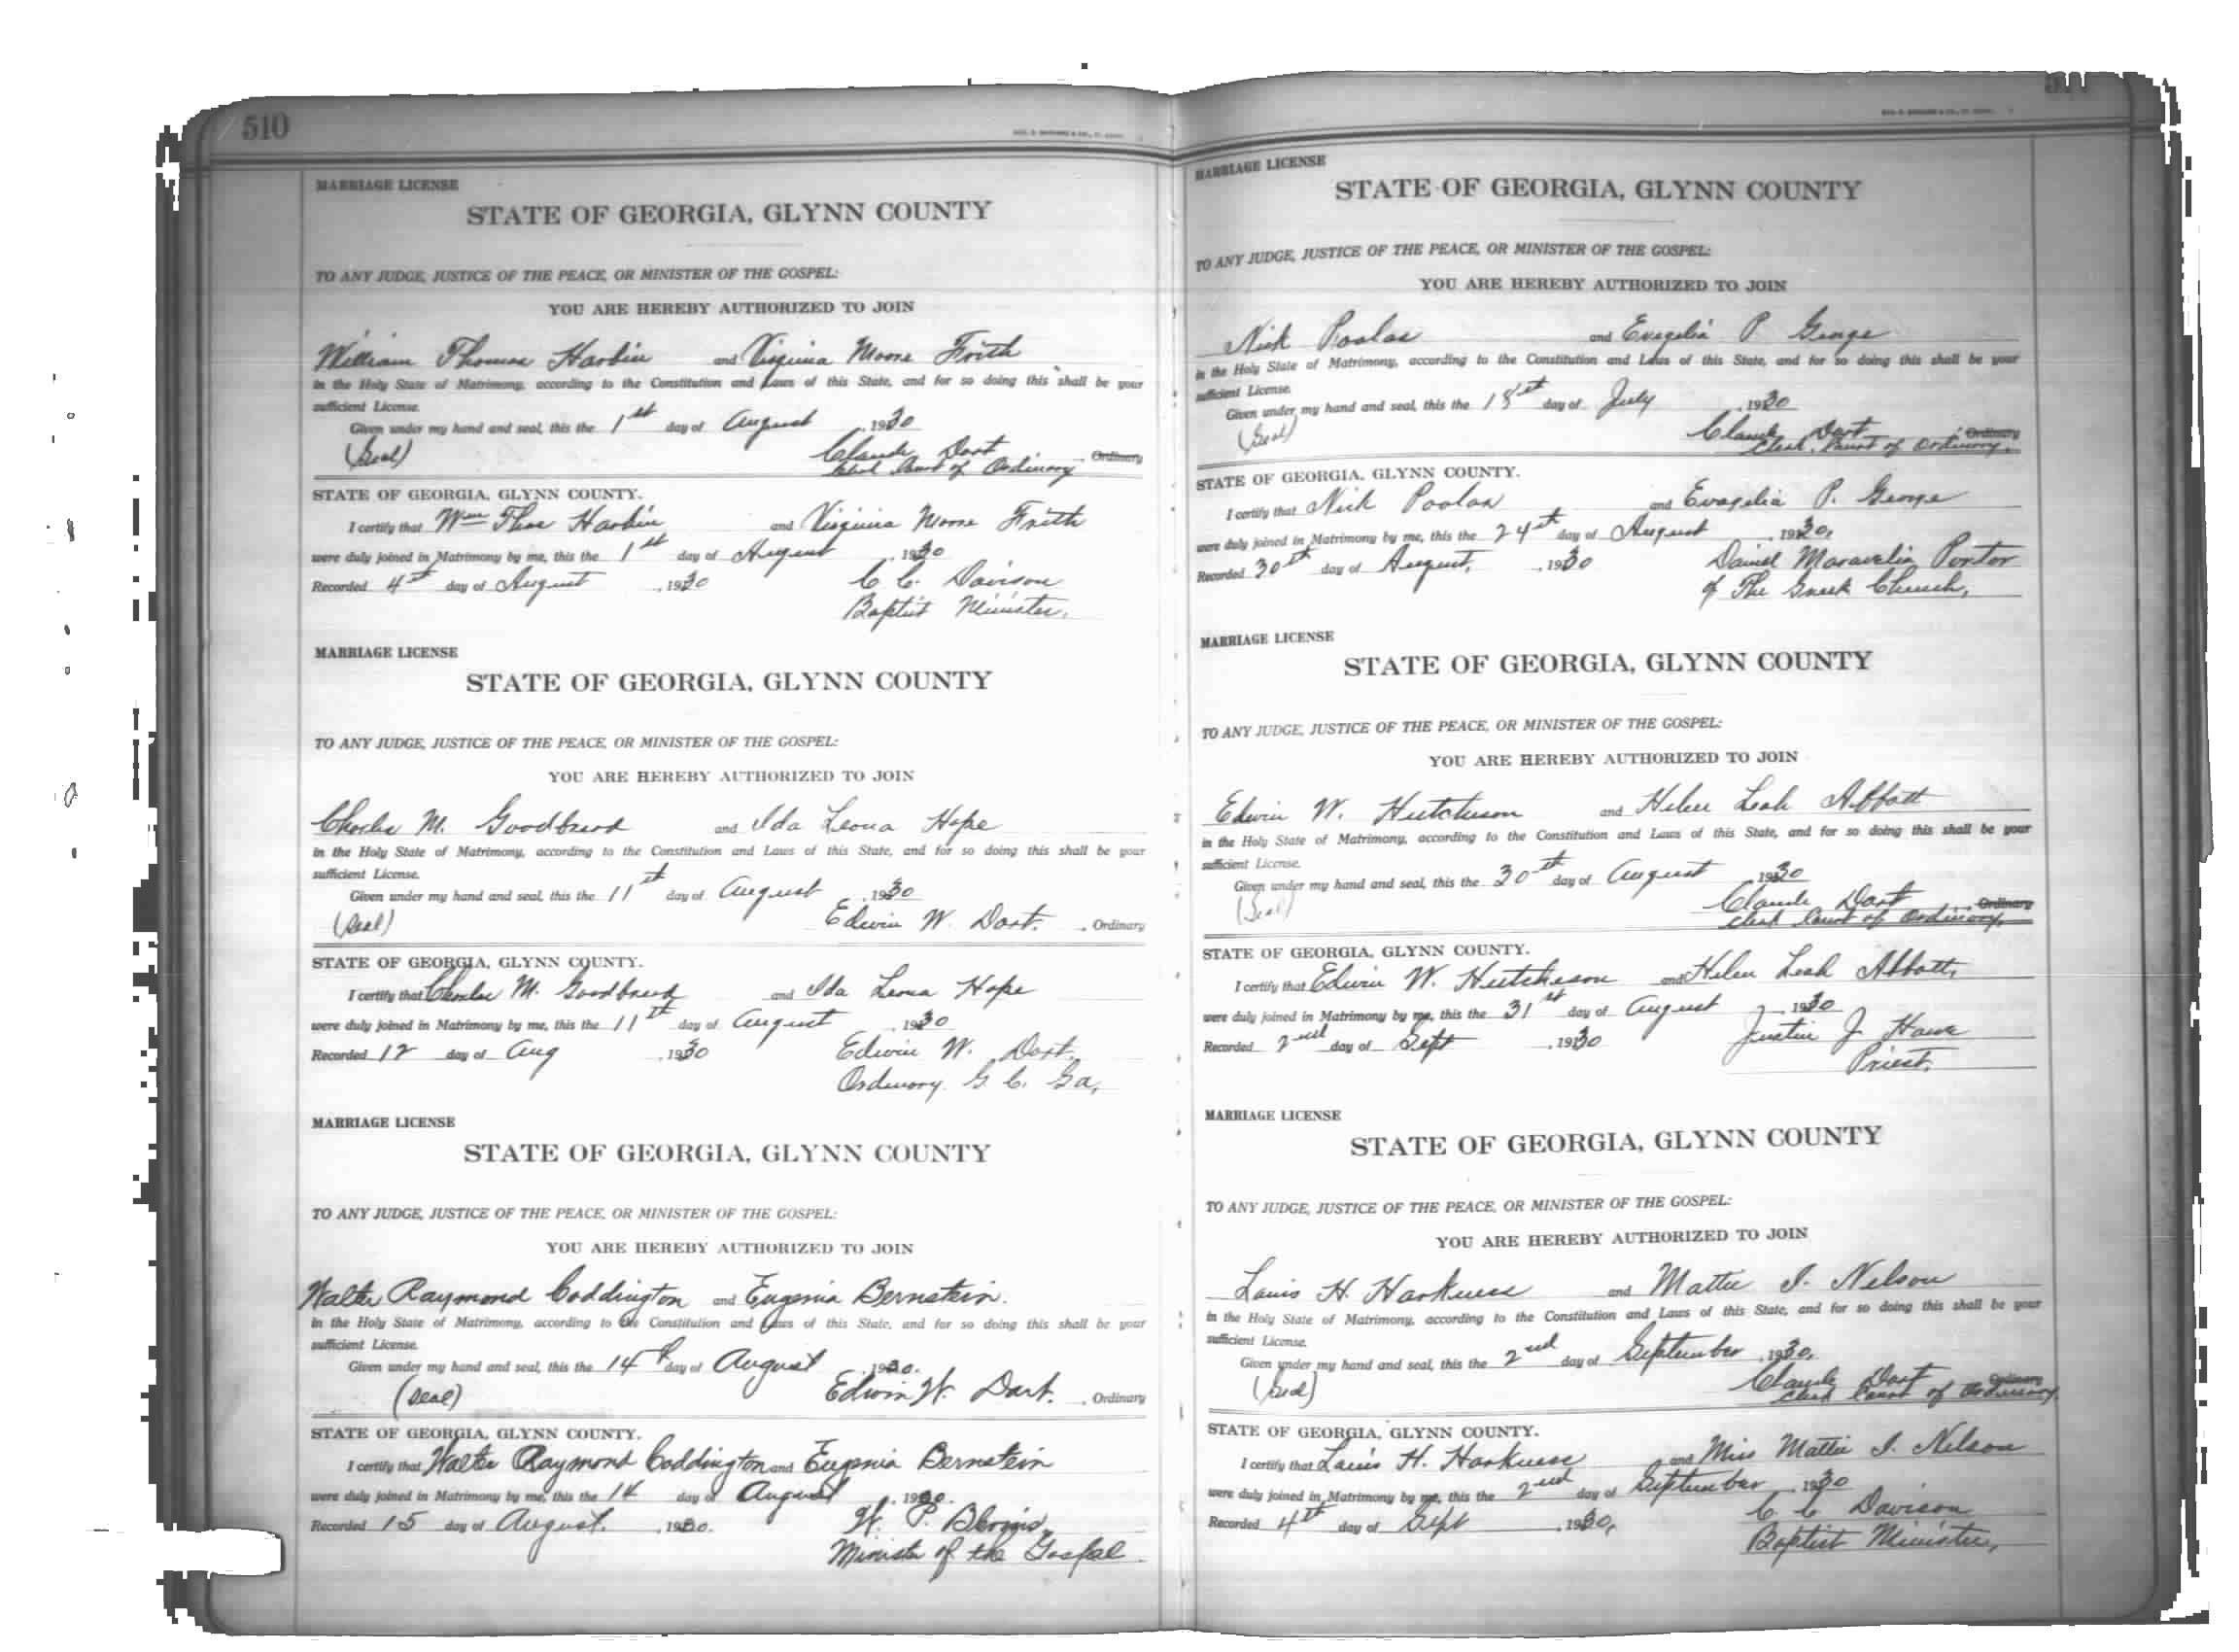 510
MARRIAGE LICENSE
STATE OF GEORGIA, GLYNN COUNTY
TO ANY JUDGE, JUSTICE OF THE PEACE, OR MINISTER OF THE GOSPEL:
YOU ARE HEREBY AUTHORIZED TO JOIN
William Thomas Harbin and Virginia Moore Frith
in the Holy State of Matrimony, according to the Constitution and Laws of this State, and for so doing this shall be your
sufficient License.
Given under my hand and seal, this the 1st day of August, 1930
(Seal) Claude Dart, Ordinary
Clerk Court of Ordinary
STATE OF GEORGIA, GLYNN COUNTY.
I certify that Wm Thos Harbin and Virginia Moore Frith
were duly joined in Matrimony by me, this the 1st day of August, 1930
Recorded 4th day of August, 1930 C. C. Davison
Baptist Minister.
MARRIAGE LICENSE
STATE OF GEORGIA, GLYNN COUNTY
TO ANY JUDGE, JUSTICE OF THE PEACE, OR MINISTER OF THE GOSPEL:
YOU ARE HEREBY AUTHORIZED TO JOIN
Charles M. Goodbread and Ida Leona Hope
in the Holy State of Matrimony, according to the Constitution and Laws of this State, and for so doing this shall be your
sufficient License.
Given under my hand and seal, this the 11th day of August, 1930
(Seal) Edwin W. Dart., Ordinary
STATE OF GEORGIA, GLYNN COUNTY.
I certify that Charles M. Goodbread and Ida Leona Hope
were duly joined in Matrimony by me, this the 11th day of August, 1930
Recorded 12 day of Aug, 1930 Edwin W. Dart.
Ordinary G. C. Ga.
MARRIAGE LICENSE
STATE OF GEORGIA, GLYNN COUNTY
TO ANY JUDGE, JUSTICE OF THE PEACE, OR MINISTER OF THE GOSPEL:
YOU ARE HEREBY AUTHORIZED TO JOIN
Walter Raymond Coddington and Eugenia Bernstein.
in the Holy State of Matrimony, according to the Constitution and Laws of this State, and for so doing this shall be your
sufficient License.
Given under my hand and seal, this the 14th day of August, 1930.
(Seal) Edwin W. Dart., Ordinary
STATE OF GEORGIA, GLYNN COUNTY.
I certify that Walter Raymond Coddington and Eugenia Bernstein
were duly joined in Matrimony by me, this the 14 day of August, 1930.
Recorded 15 day of August., 1930. W. P.
Minister of the Gospel.
MARRIAGE LICENSE
STATE OF GEORGIA, GLYNN COUNTY
TO ANY JUDGE, JUSTICE OF THE PEACE, OR MINISTER OF THE GOSPEL:
YOU ARE HEREBY AUTHORIZED TO JOIN
Nick Poolas and Evagelia P. George
in the Holy State of Matrimony, according to the Constitution and Laws of this State, and for so doing this shall be your
sufficient License.
Given under my hand and seal, this the 18st day of July, 1930
(Seal) Claude Dart, Ordinary
Clerk, Court of Ordinary.
STATE OF GEORGIA, GLYNN COUNTY.
I certify that Nick Poolas and Evagelia P. George
were duly joined in Matrimony by me, this the 24th day of August, 1930,
Recorded 30th day of August, 1930 Daniel Maravelia Portor
of The Greek Church,
MARRIAGE LICENSE
STATE OF GEORGIA, GLYNN COUNTY
TO ANY JUDGE, JUSTICE OF THE PEACE, OR MINISTER OF THE GOSPEL:
YOU ARE HEREBY AUTHORIZED TO JOIN
Edwin W. Hutcheson and Helen Leah Abbott
in the Holy State of Matrimony, according to the Constitution and Laws of this State, and for so doing this shall be your
sufficient License.
Given under my hand and seal, this the 30th day of August, 1930
(Seal) Claude Dart, Ordinary
Clerk Court of Ordinary.
STATE OF GEORGIA, GLYNN COUNTY.
I certify that Edwin W. Hutcheson and Helen Leah Abbott,
were duly joined in Matrimony by me, this the 31st day of August, 1930
Recorded 2nd day of Sept, 1930 Justin J
Priest.
MARRIAGE LICENSE
STATE OF GEORGIA, GLYNN COUNTY
TO ANY JUDGE, JUSTICE OF THE PEACE, OR MINISTER OF THE GOSPEL:
YOU ARE HEREBY AUTHORIZED TO JOIN
Louis H. Harkness and Mattie I. Nelson
in the Holy State of Matrimony, according to the Constitution and Laws of this State, and for so doing this shall be your
sufficient License.
Given under my hand and seal, this the 2nd day of September, 1930,
(Seal) Claude Dart Ordinary
Clerk Court of Ordinary.
STATE OF GEORGIA, GLYNN COUNTY.
I certify that Louis H. Harkness and Miss Mattie I. Nelson
were duly joined in Matrimony by me, this the 2nd day of September, 1930
Recorded 4th day of Sept, 1930, C. C. Davison
Baptist Minister,